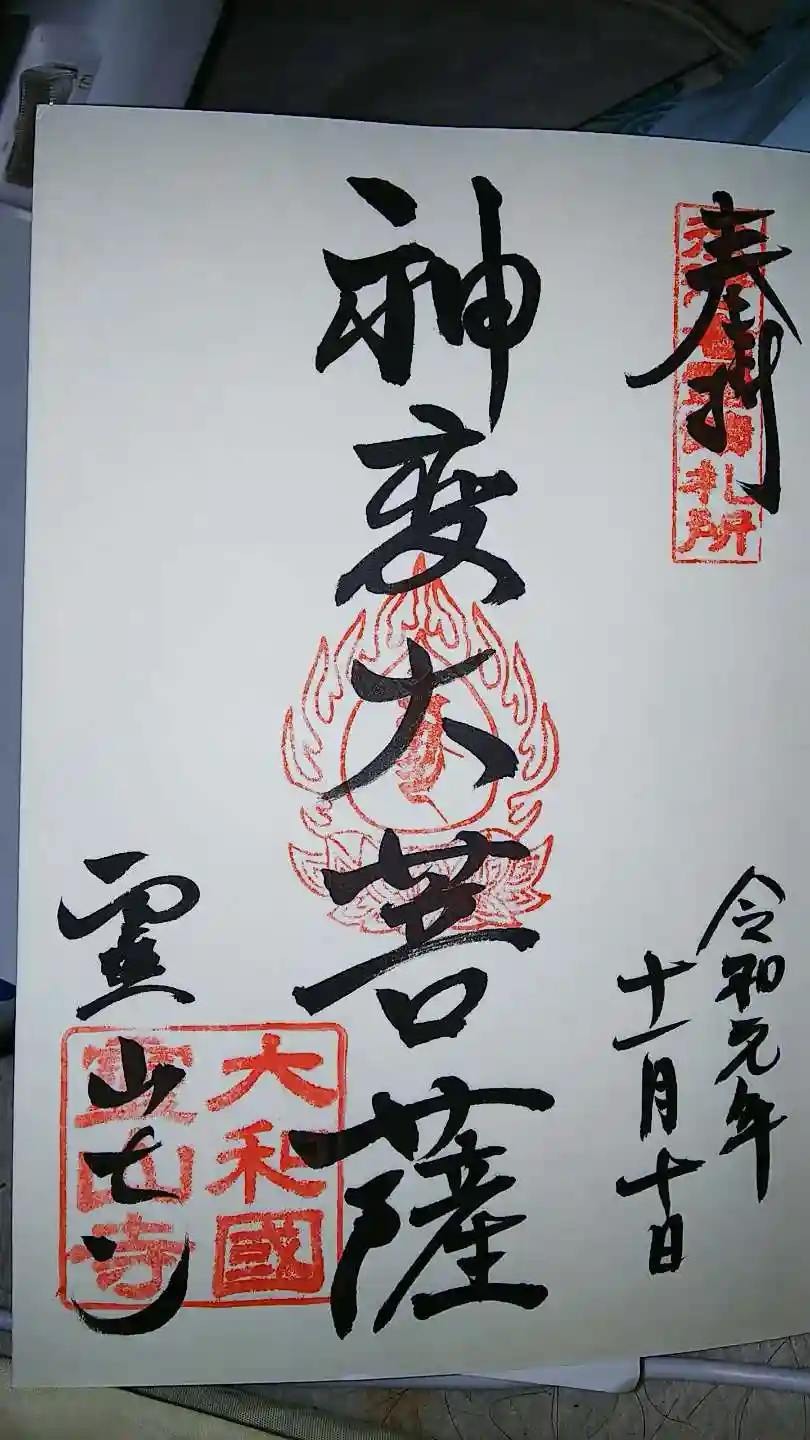 奉拝
札所
令和元年
十一月十日
神変大菩薩
霊山寺
大和國
霊山寺